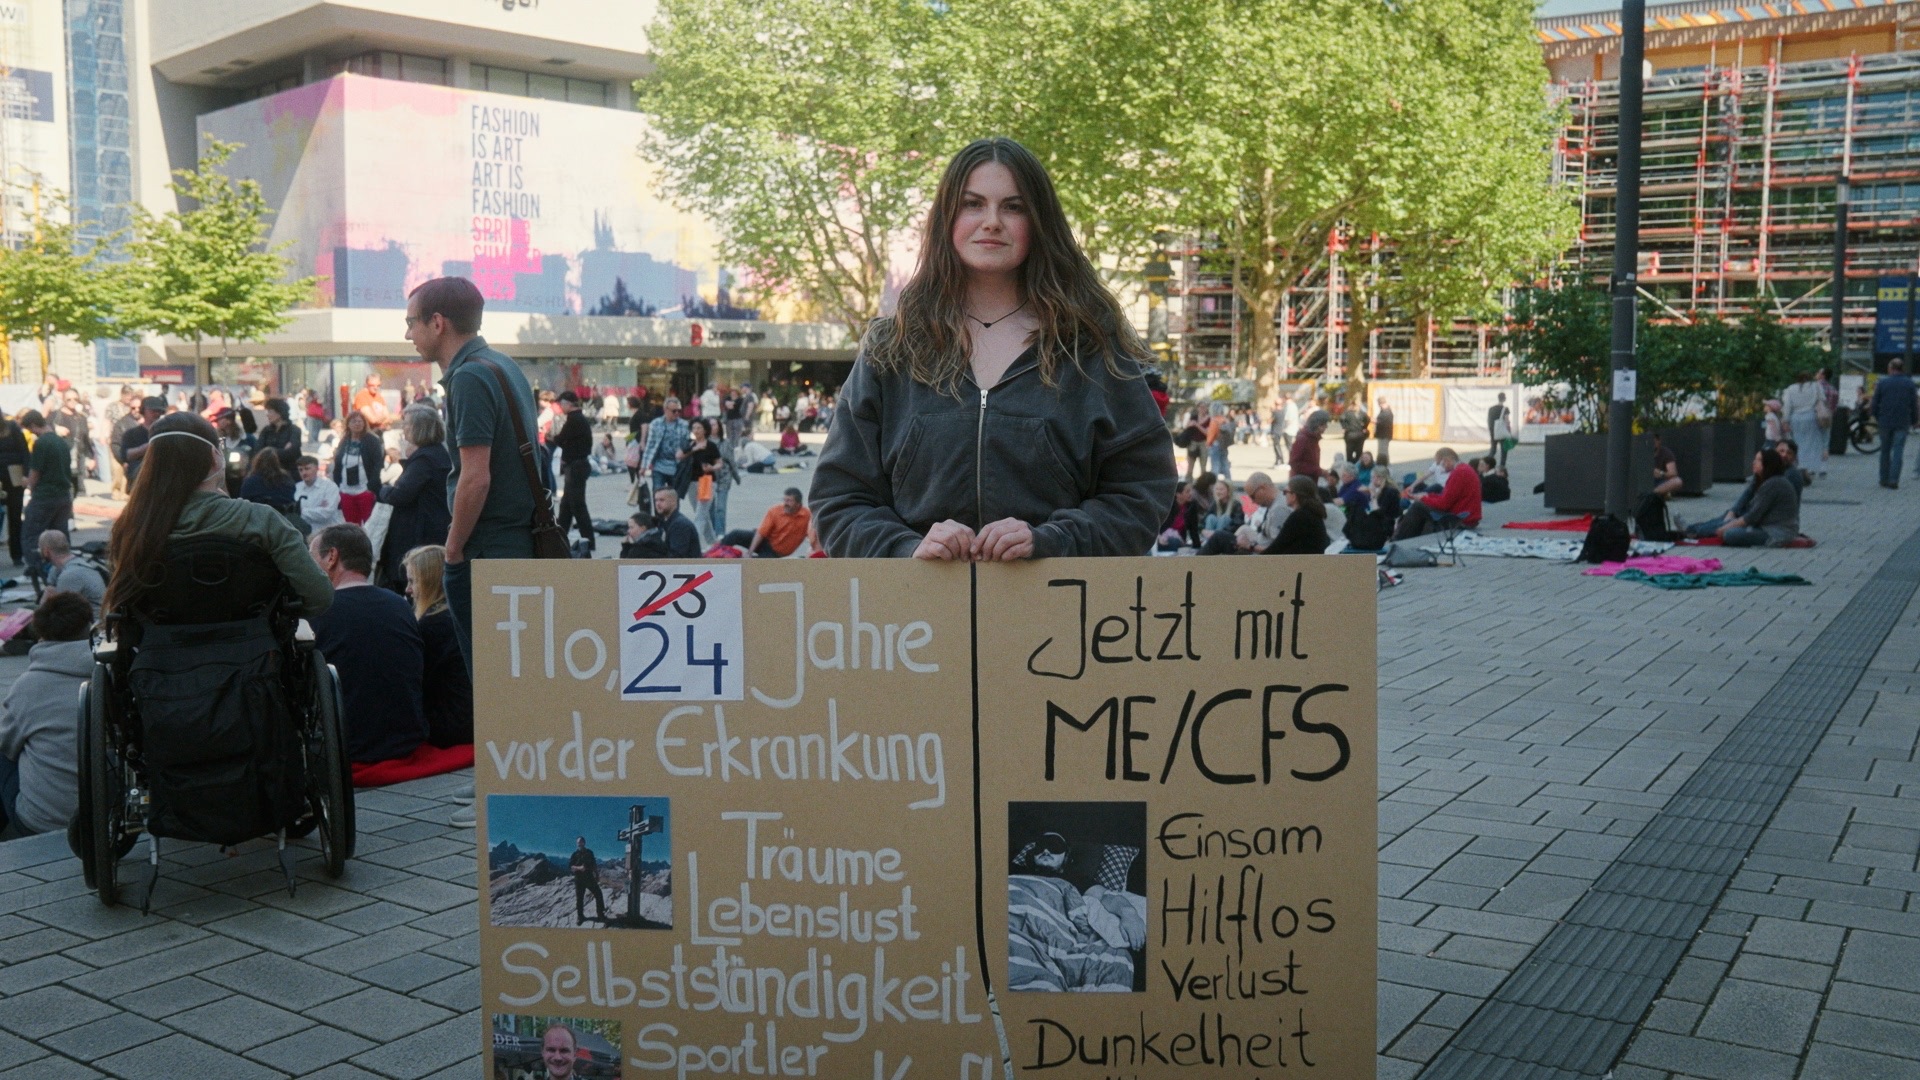 FASHION
IS ART
ART IS
FASHION
Flo, 23 24 Jahre
vor der Erkrankung
Träume
Lebenslust
Selbstständigkeit
Sportler
Jetzt mit
ME/CFS
Einsam
Hilflos
Verlust
Dunkelheit